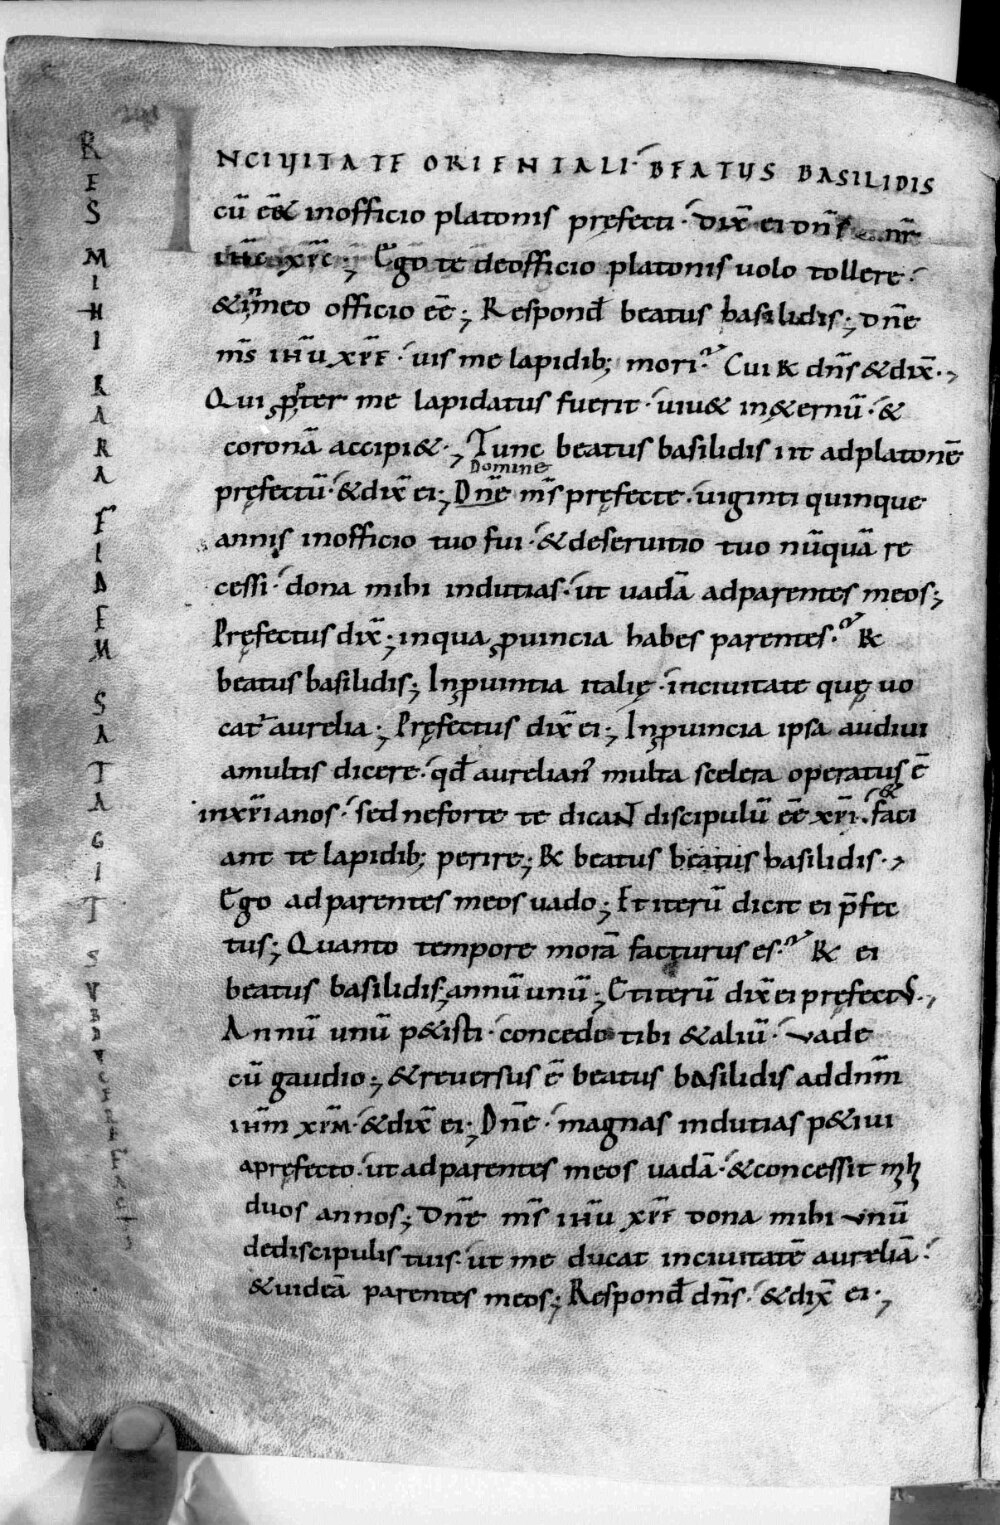 INCIVITATE ORIENTALI· BEATVS BASILIDIS
cū eēt inofficio platonis pręfecti· dix̄ ei dn̄s nr̄
ihc xp̄c; Ego te deofficio platonis uolo tollere·
& inmeo officio eē; Respond̄ beatus basilidis; dn̄e
ms̄ ihū xp̄e· uis me lapidib; mori? Cui R& dn̄s & dix̄·;
Qui ꝓpter me lapidatus fuerit· uiu& in&ernū· &
coronā accipi&·; Tunc beatus basilidis iit adplatonē
Domine
pręfectū· & dix̄ ei; Dn̄e ms̄ pręfecte· uiginti quinque
annis inofficio tuo fui· & deseruitio tuo nūquā re
cessi· dona mihi indutias· ut uadā adparentes meos;
Pręfectus dix̄; inqua ꝓuincia habes parentes? R&
beatus basilidis; Inꝓuintia italię· inciuitate quę uo
cat̄ aurelia; Pręfectus dix̄ ei; Inꝓuincia ipsa audiui
amultis dicere· qd̄ aurelian᾽ multa scelera operatus ē
inxp̄ianos· sed neforte te dicaNT discipulū eē xp̄i· & faci
ant te lapidib; perire; R& beatus beatus basilidis·;
Ego adparentes meos uado; Et iterū dicit ei p̄fec
tus; Quanto tempore morā facturus es? R& ei
beatus basilidis; annū unū; Et iterū dix̄ ei pręfectus·;
Annū unū p&isti· concedo tibi & aliū· vade
cū gaudio; & reuersus ē beatus basilidis addnm̄
ihm̄ xp̄m· & dix̄ ei; Dn̄e· magnas indutias p&iui
apręfecto· ut adparentes meos uadā· & concessit mihi
duos annos; Dn̄e ms̄ ihū xp̄e dona mihi vnū
dediscipulis tuis· ut me ducat inciuitatē aureliā·
& uideā parentes meos; Respond̄ dn̄s· & dix̄ ei·;
RES MIHI RARA FIDEM SATAGIT